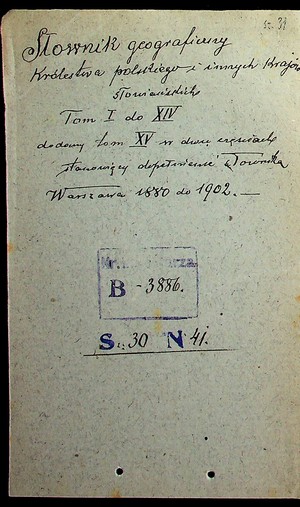 Słownik geograficzny
Królestwa polskiego i innych Krajów
słowiańskich
Tom I do XIV
dodowy tom XV w dwóch częściach
stanowiący dopełnienie słownika
Warszawa 1880 do 1902. —
B - 3886.
S. 30 N 41.